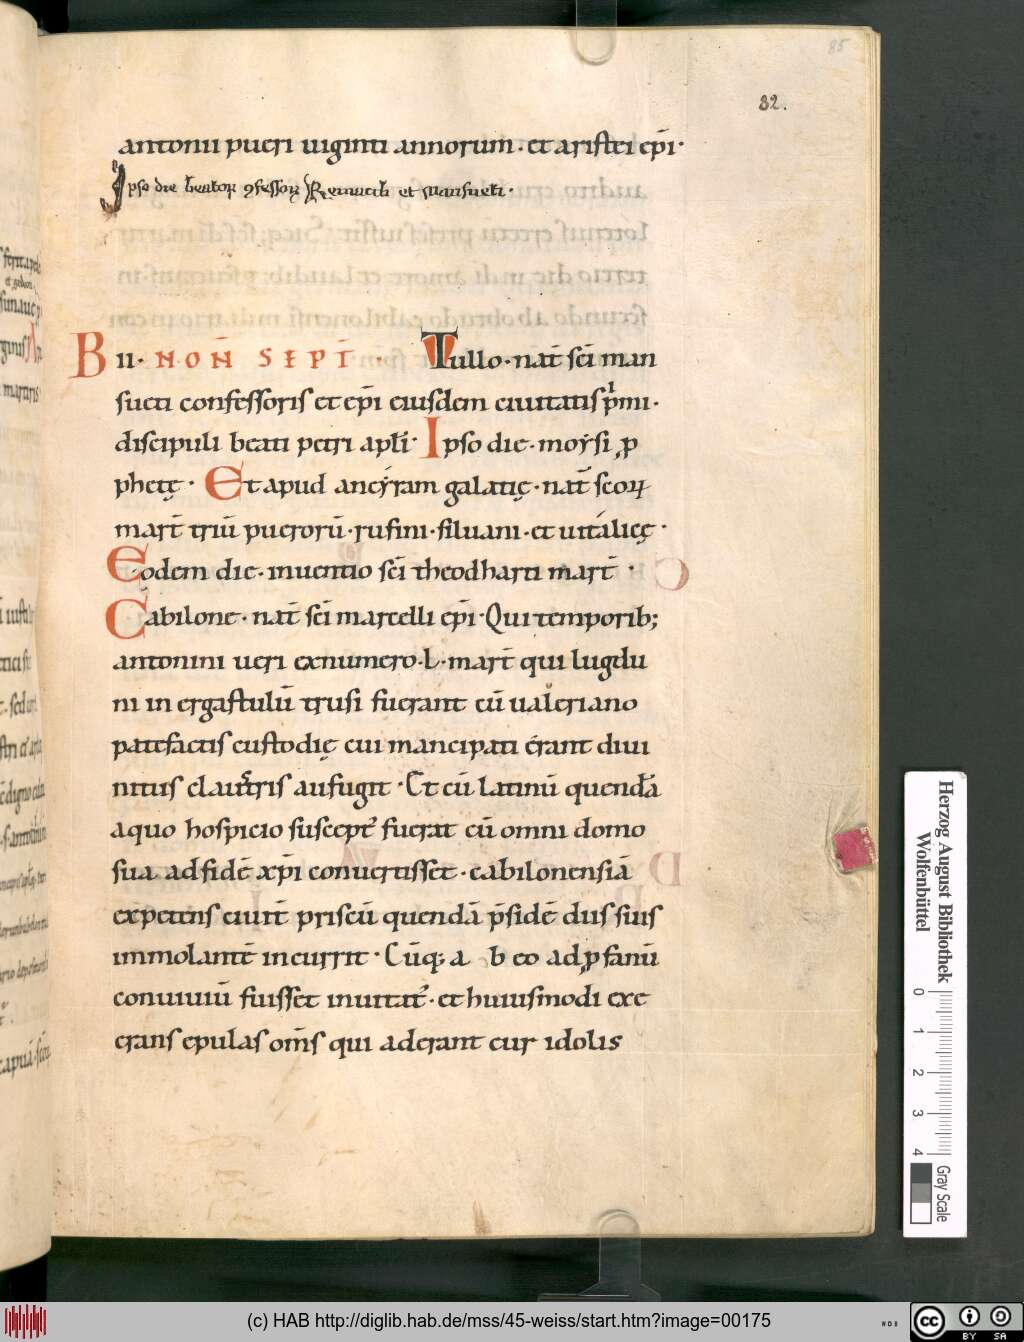 85
82.
antonii pueri uiginti annorum · et aristei ep̄i ·
Ipso die beatoꝝ ꝯfessoꝝ Remacli et Mansueti ·
B II · NOŇ SEPT̄ · Tullo · nat̄ sc̄i man
sueti confessoris et ep̄i eiusdem ciuitatis pͥmi ·
discipuli beati petri apl̄i · Ipso die · moẏsi ꝓ
phetę · Et apud ancẏram galatię · nat̄ sc̄oꝝ
mart̄ triū puerorū · rufini · siluani · et uitálicę ·
Eodem die · inuentio sc̄i theodharti mart̄ ·
Cabilone · nat̄ sc̄i marcelli ep̄i · Qui temporib;
antonini ueri ex numero · L · mart̄ qui lugdu
ni in ergastulū trusi fuerant cū ualeriano
patefactis custodię cui mancipati érant diui
nitus claustris aufugit · Et cū latinū quendā
a quo hospicio susceptꝰ fuerat cū omni domo
sua ad fidē xp̄i conuertisset · cabilonensiā
expetens ciuit̄ priscū quendā p̄sidē dus sius
immolantē incurrit · Cūq; a b eo ad ꝓfanū
conuiuiū fuisset inuitatꝰ · et huiusmodi exe
crans epulas om̄s qui aderant cur idolis
Herzog August Bibliothek
Wolfenbüttel
0 1 2 3 4
Gray Scale
(c) HAB http://diglib.hab.de/mss/45-weiss/start.htm?image=00175
cc BY SA